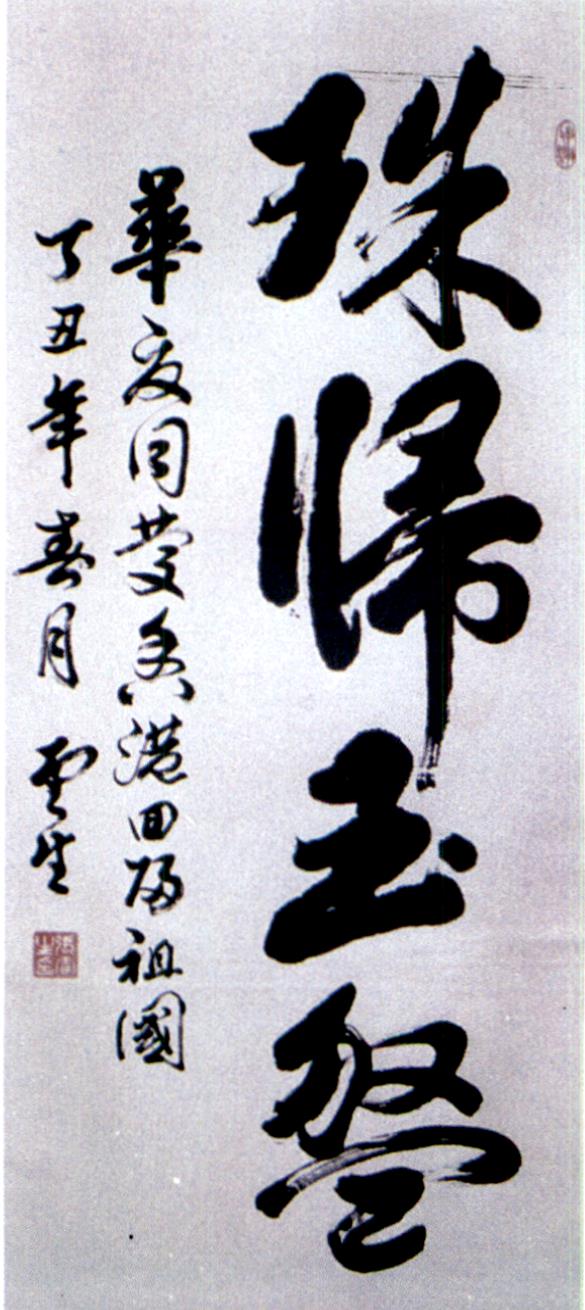 珠歸玉盤
華夏同慶香港回歸祖國
丁丑年春月 雲生